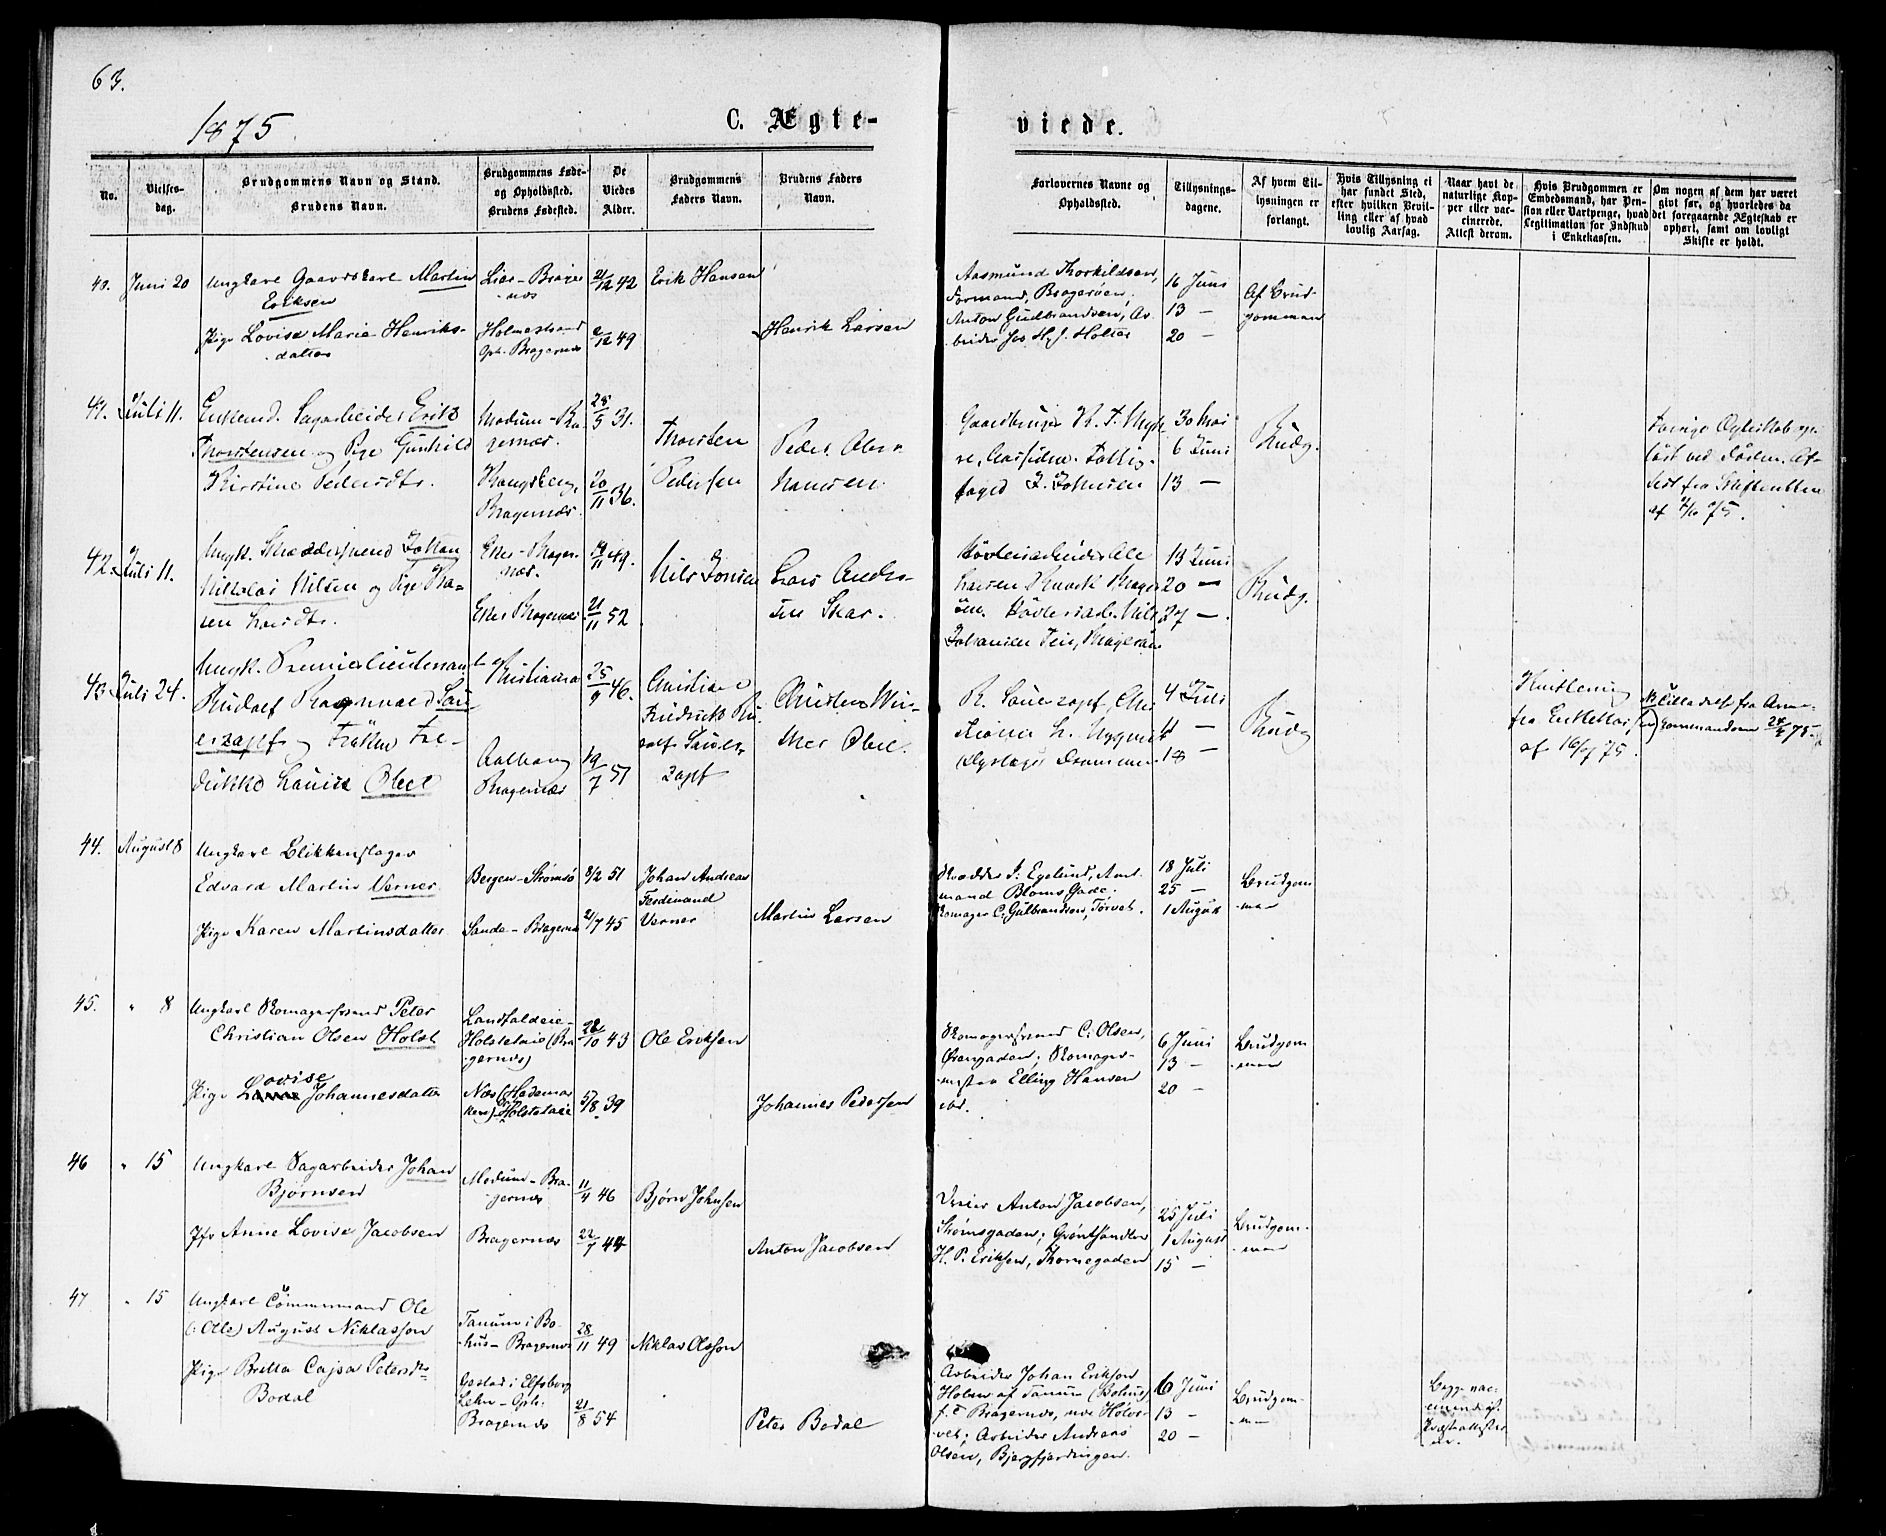 63.
1875
C. Ægte-
viede.
No.
Vielses-
dag.
Brudgommens Navn og Stand.
Brudens Navn.
Brudgommens Føde-
og Opholdssted.
Brudens Fødested.
De
Viedes
Alder.
Brudgommens
Faders Navn.
Brudens Faders
Navn.
Forlovernes Navne og
Opholdssted.
Tillysnings-
dagene.
Af hvem Til-
lysningen er
forlangt.
Hvis Tillysning ei
har fundet Sted,
efter hvilken Bevil-
ling eller af hvad
lovlig Aarsag.
Naar havt de
naturlige Kop-
per eller vac-
cinerede.
Attest derom.
Hvis Brudgommen er
Embedsmand, har Pen-
sion eller Vartpenge, hvad
Legitimation for Indskud
i Enkekassen.
Om nogen af dem har været
givt før, og hvorledes da
det foregaaende Ægteskab er
ophørt, samt om lovligt
Skifte er holdt.
40. Juni 20
Ungkarl Gaardskarl Martin
Eriksen
Pige Lovise Marie Henriks-
datter
Lier - Brager
nes
Holmestrand
Oph. Bragernæs
21/12 42
2/12 49
Erik Hansen
Henrik Larsen
Aasmund Thorkildsen,
Formand, Bragerøen.
Anton Gudbrandsen, Ar-
beider hos H. J. Holter
16 Juni
13 —
20 —
Af Brud-
gommen
41. Juli 11.
Enkemd. Sagarbeider Erik
Thorstensen og Pige Gunhild
Kirstine Pedersdtr.
Modum - Bra
gernæs.
Kongsberg,
Bragernæs.
25/5 31.
20/11 36.
Thorsten
Pedersen
Peder Olsen
Hansen
30 Mai
6 Juni
13 —
Brudg.
forrige Ægteskab op-
løst ved Døden. At-
test fra Skifteretten
42. Juli 11.
Ungk. Skræddersvend Johan
Nikolai Nilsen og Pige Ka-
ren Larsdtr.
Eker - Brager
næs.
Eker Bragernæs.
19/11 49.
21/11 52
Nils Jonsen
Lars Ander-
sen Skar.
Høvleriarbeider Ole
Larsen
Johansen
Bragerøen
13 Juni
20 —
27 —
Brudg.
43. Juli 24.
Ungk. Premierlieutenant
Rudolf Ragnvald Sau-
erzapf og Frøken Fre-
drikke Louise Obel
Kristiania
Aalborg
Bragernæs
25/9 46.
19/7 51
Christian
Fredrik Ru-
dolf Sauer-
zapf
Christen Win-
ther Obel.
R. Sauerzapf, Chr
istiania L. Nyqvist
Drammen.
4 Juli
11 —
18 —
Brudg
Kvittering
fra Enkekas-
sen af 16/7 75.
NB Tilladelse fra Arme-
kommandoen
44. August 8
Ungkarl Blikkenslager
Edvard Martin Verner
Pige Karen Martinsdatter
Bergen - Strømsø
Sande - Bragernæs
8/2 51
21/7 45
Johan Andreas
Ferdinand
Verner
Martin Larsen
Skrædder J. Egelund, Amt-
mand Bloms Gade.
Skomager C. Gulbrandsen, Torvet.
18 Juli
25 —
1 August
Brudgom
men
45. " 8
Ungkarl Skomagersvend Peter
Christian Olsen Holst
Pige Lovise Johannesdatter
Landfaldeie -
Holsteteie (Bra
gernæs)
Næs (Hedemar
ken) - Holsteteie
28/10 43
5/8 39
Ole Eriksen
Johannes Pedersen
Skomagersvend C. Olsen,
Øvregaden; Skomager-
mester Elling Hansen
ibd.
6 Juni
13 —
20 —
Brudgom
men
46 " 15
Ungkarl Sagarbeider Johan
Bjørnsen
Jfr Anne Lovise Jacobsen
Modum - Bra-
gernæs
Bragernæs
11/4 46
22/7 44
Bjørn Johnsen
Anton Jacobsen
Veier Anton Jacobsen,
Strømsgaden; Grønthandler
H. P. Eriksen, Thornegaden
25 Juli
1 August
15 —
Brudgom-
men
47 " 15
Ungkarl Tømmermand Ole
(: Olle) August Niklasson
Pige Britta Cajsa Petersdtr
Bodal
Tanum i Bo-
hus - Bragernæs
Gestad i Elfsborg
Lehn - Oph.
Bragernæs
28/11 49
21/8 54
Niklas Olsson
Peter Bodal
Arbeider Johan Erikson
Holm af Tanum (Bohus),
f. T. Bragernæs, nær Hølor-
vet; Arbeider Andreas
Olsen, Bjergfjerdingen.
6 Juni
13 —
20 —
Brudgom-
men
Begge vac-
cinered